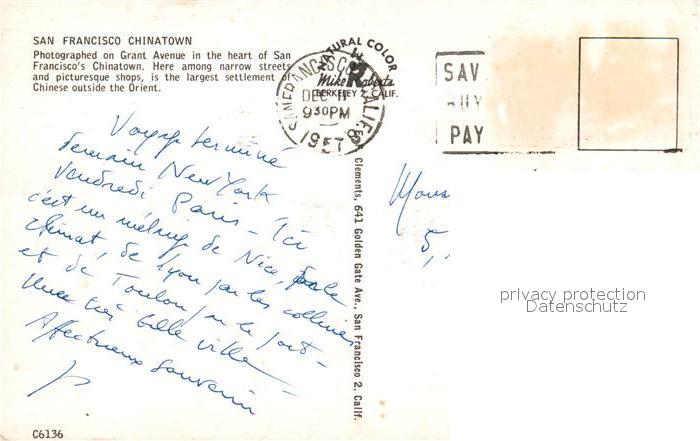 SAN FRANCISCO CHINATOWN
Photographed on Grant Avenue in the heart of San
Francisco's Chinatown. Here among narrow streets
and picturesque shops, is the largest settlement of
Chinese outside the Orient.
NATURAL COLOR
Mike Roberts
BERKELEY 2, CALIF.
SAN FRANCISCO CALIF.
DEC 11
930PM
1957
SAV
BUY
PAY
Voyage terminé
demain New York
Vendredi Paris - Ici
c'est un mélange de Nice, par le
climat, de Lyon par les collines
et de Toulon par le port -
Une très belle ville -
Affectueux souvenir
Clements, 641 Golden Gate Ave., San Francisco 2, Calif.
Mons
5,
privacy protection
Datenschutz
C6136